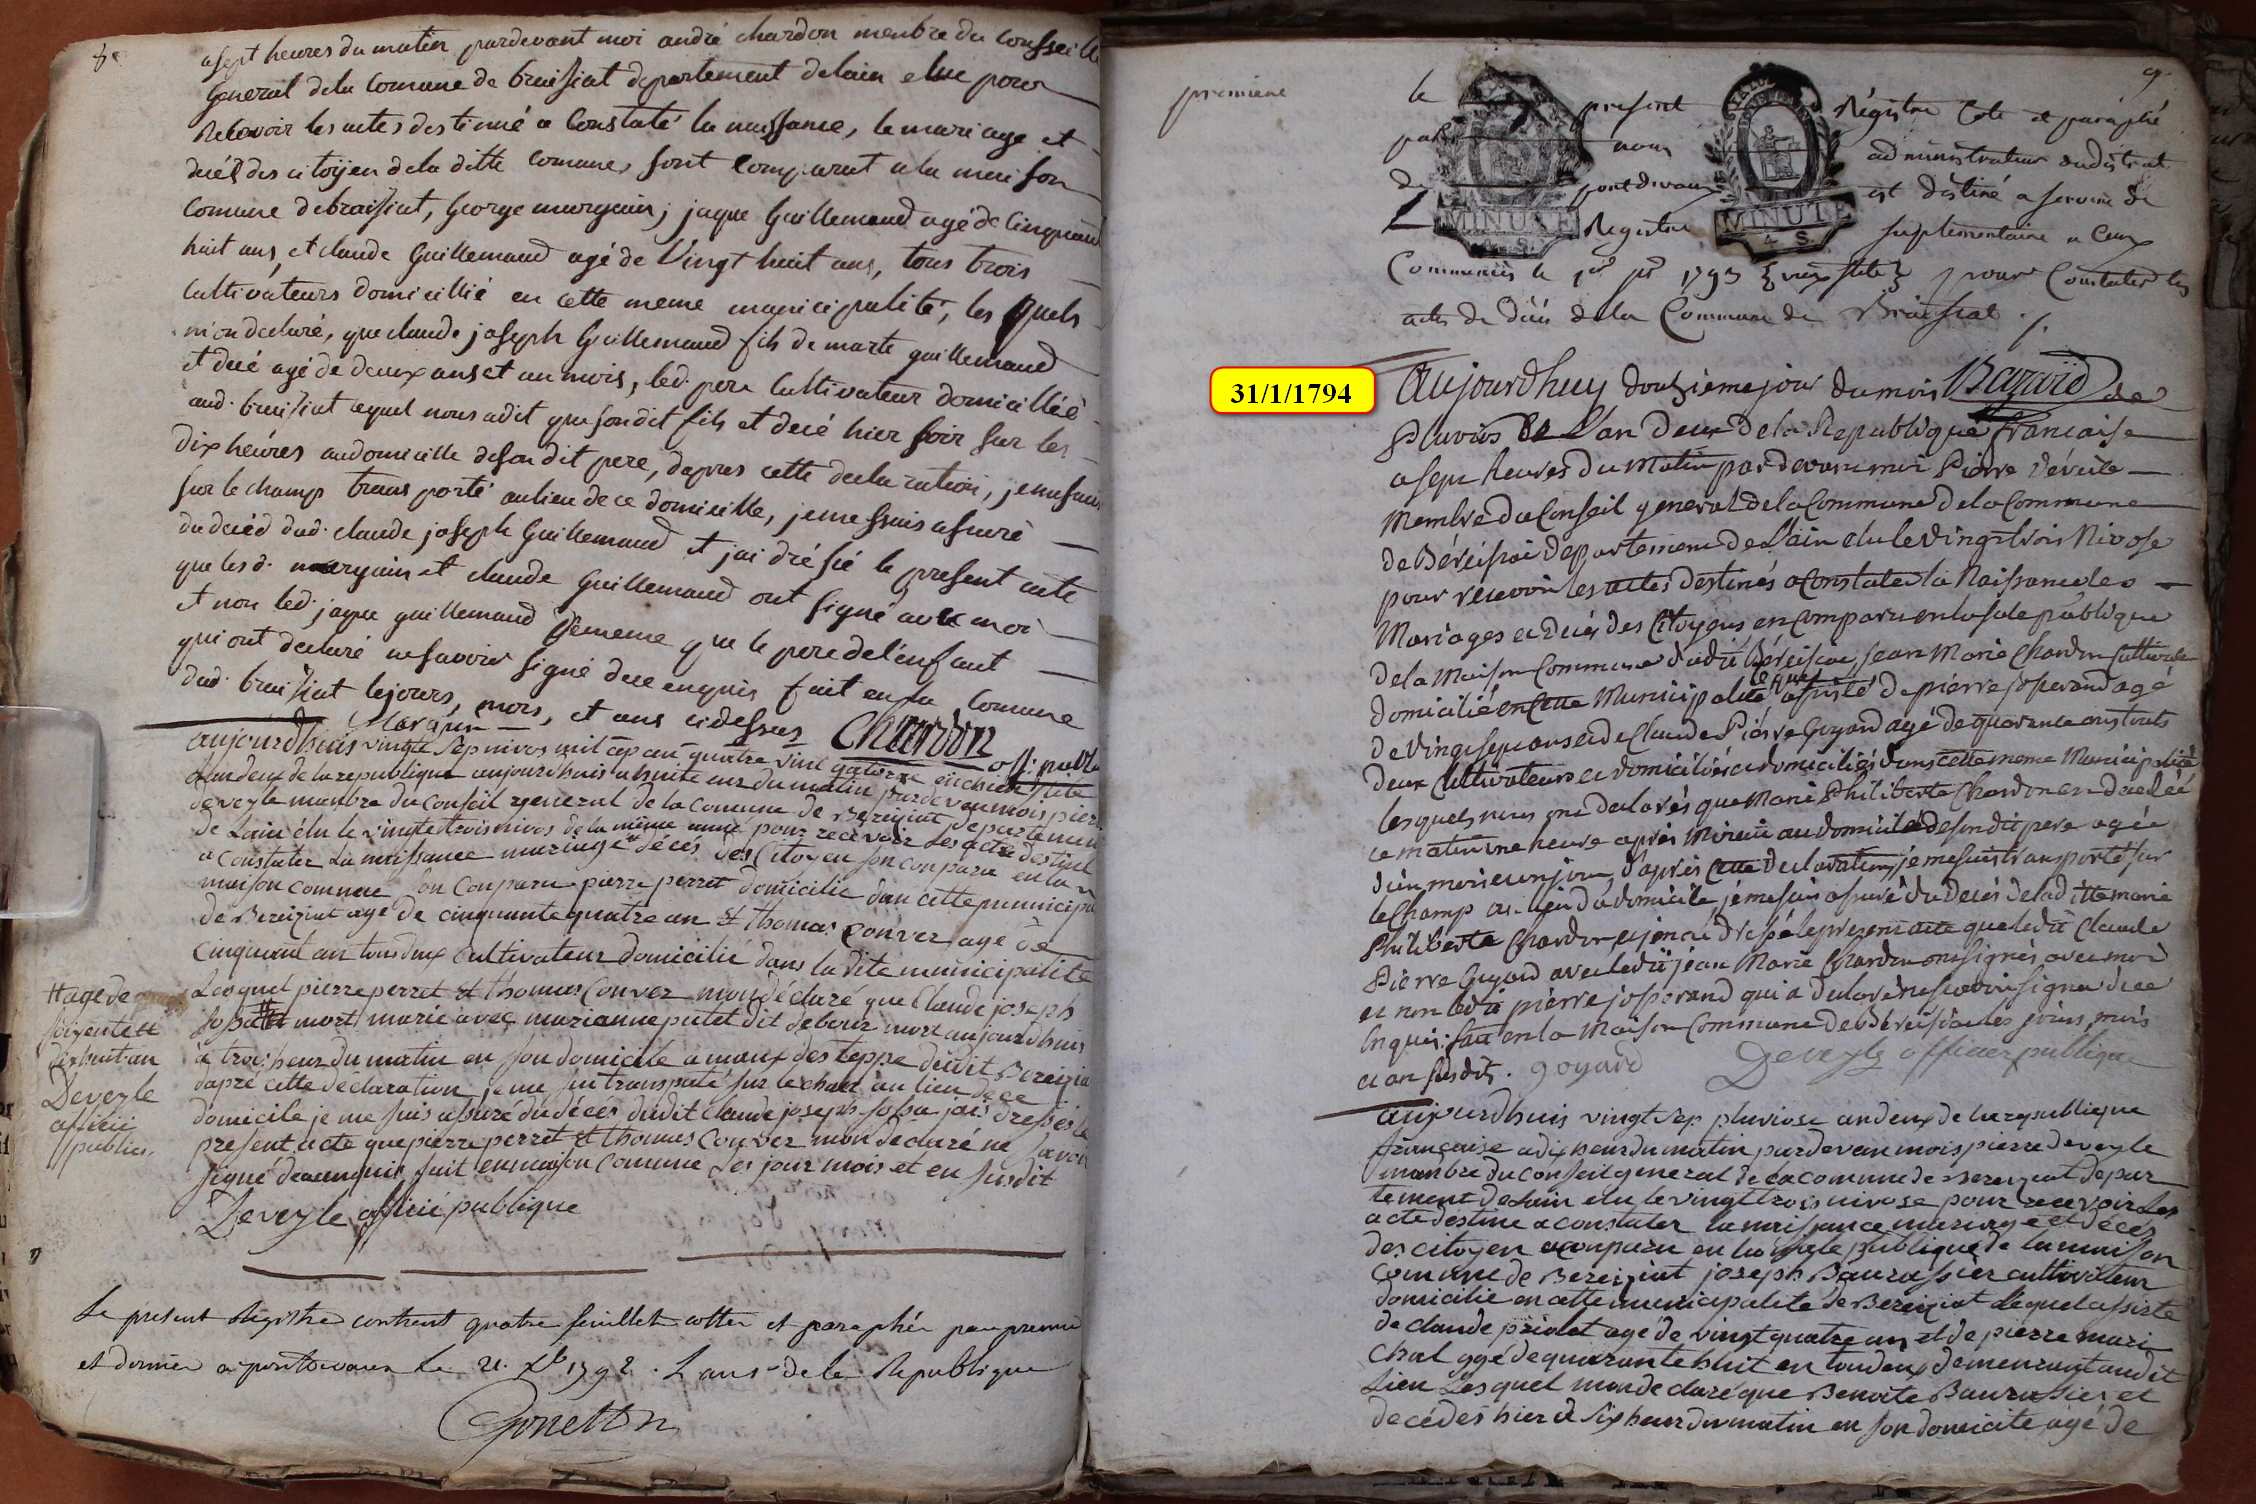 8e
a sept heures du matin pardevant moi andré chardon menbre du Conseille
General dela Comune de braisiat departement delain elue pour
Recevoir les actes destinné a Constaté la naissance, le mariage et
decél des citoÿen dela ditte Comune, sont Comparut a la maison
Comune debraisiat, George morgain, jaque Guillemaud agé de Cinquante
huit ans, et claude Guillemaud agé de Vingt huit ans, tous trois
Cultivateurs domicillié en cette meme municipalité, les quels
m'on declaré, que claude joseph Guillemaud fils de marte guillemaud
et decé agé de deux ans et un mois, led. pere Cultivateur domicillié
aud. braisiat lequel nous adit que sondit fils et decé hier soir sur les
dix heures audomicille desondit pere, dapres cette declaration, je me suis
sur le champ transporté aulieu de ce domicille, jeme ssuis assuré
du decéd dud. claude joseph Guillemaud et jai dréssé le present acte
que lesd. morgain et claude Guillemaud ont signé avec moi
et non led. jaque guillemaud dememe que le pere delenfant
qui ont declaré ne savoir signé dece enquis fait en la Comune
dud. braisiat lejours, mois, et ans cidessus Chardon
Morgain off. publi
aujourdhuis vingte sep nivos mil cep cen quatre vint quatorze enchien stile
landeux de la republique aujourdhuis a huite eur du matin pardevan mois pierre
deveyle manbre du Conseil general de la Comune de Bereiziat departemen
de Lain élu le vingte trois nivos de la même anné pour recevoir Les acte destiné
a Constater La naissance mariage et décés des Citoyen son conparu en la
maison commune son Conparu pierre perret domicilié dan cette municipa
de Bereiziat agé de cinquante quatre an et thomas Convez agé de
cinquante an tous deux Cultivateur domicilié dans la dite municipalité
Lesquel pierre perret et thomas Convez mon déclaré que Claude joseph
sosa mort marié avec marianne putet dit debour mort aujourdhuis
a trois heur du matin en son domicile a maux des teppe deudit Bereizia
dapré cette déclaration je me sui transporté sur le chan au lieu de ce
domicile je me suis assuré du décés dudit Claude joseph sosa jai dressés le
present acte que pierre perret et thomas Convez mon déclaré ne savoir
signé deceenquis fait en maison Comune Les jour mois et en susdit
Deveyle officié publique
tt agé de
soixente et
dixhuit an
Deveyle
officié
public.
Le present Registre contient quatre feuillets cottes et paraphés par premier
et dernier a pontdevaux Le 21. Xbre 1792. L'an 1er de la Republique
Gonetton
premiere
9.
le present Régistre Coté et paraphé
par nous administrateur dudistrict
de pontdevaux est destiné a servir de
Registre suplementaire a Ceux
MINUTE
4. S.
MINUTE
4. S.
Commencés le 1er jer 1793 (vieux stile) pour Constater les
actes de décés de la Commune de Bréisiat ./.
31/1/1794
Aujourdhuy douzieme jour du mois de
Pluvios de L'an deux de la Republique francaise
a sept heures du matin pardevant moi Pierre Deveile
Membre du Conseil general de la Commune de la Commune
de Béréisiat departement de Lain elu le vingt trois Nivose
pour recevoir les actes destinés a Constater la Naissance les
Mariages et Decés des Citoyens en Comparu en la sale publique
de la Maison Commune dudit Béréisiat, jean Marie Chardon Cultivateur
domicilié en Cette Municipalité lequel assisté de pierre josperand agé
de Vingt sept ans et de Claude Piérre Guyard agé de quarante ans touts
deux Cultivateurs et domiciliés et domiciliés dans cette meme Municipalité
lesquels nous ont declarés que Marie Philiberte Chardon en decedé
ce matin une heure aprés Minuit au domicile de sondit pere agée
d'un mois et un jour, d'aprés Cette déclaration je me suis transporté sur
le Champ au lieu du domicile, je me suis assuré du Decés de la ditte marie
Philiberte Chardon et j'en ai dressé le present acte que ledit Claude
Pierre Guyard avec ledit jean Marie Chardon ont signés avec moi
et non ledit pierre josperand qui a declaré ne savoir signer de ce
enquis: fait en la Maison Commune de Béréisiat les jours, mois
et an susdits. goyard Deveyle officier publique
aujourdhuis vingt sep pluviose an deux de la republique
francaise a dix heur du matin pardevan mois pierre deveyle
manbre du Conseil general de la comune de Bereiziat depar
tement de Lain elu le vingt trois nivose pour recevoir Les
acte destiné a constater la naissance mariage et décés
des citoyen a conparu en la sale publique de la maison
Comune de Bereiziat joseph Baurassier cultivateur
domicilié en cette municipalité de Bereiziat Lequel assisté
de claude priolet agé de vingt quatre an et de pierre mari
chal agé de quarante huit en toudeux demeurant audit
Lieu Lesquel mon declaré que Benoite Baurassier et
decédés hier a six heur du matin en son domicile agé de